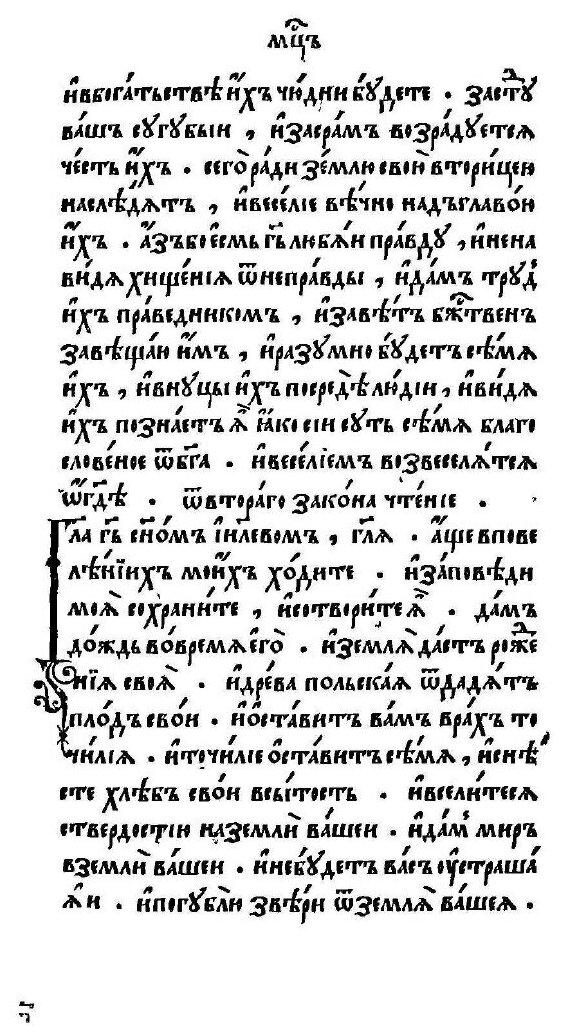 мц҃ъ
и҆вбога́тьствѣ и҆́хъ чю́дни бꙋ́дете . застꙋⷣ
ва́шъ сꙋгꙋ́быи , и҆засра́мъ возра́дꙋетсѧ
че́сть и҆́хъ . сего̀ ра́ди зе́млю свою̀ вторицею
наслѣ́дѧтъ , и҆весе́лїе вѣ́чно надъглаво́ю
и҆́хъ . а҆́зъбоесмь гь҃ любѧ́и пра́вдꙋ , и҆нена
ви́дѧ хище́нїѧ ѿнепра́вды , и҆да́мъ трꙋд̾
и҆́хъ пра́ведникомъ , и҆завѣ́тъ бж҃твенъ
завѣща́ю и҆́мъ , и҆разꙋмно бꙋ́детъ сѣ́мѧ
и҆́хъ , и҆внꙋцы и҆́хъ посредѣ лю́дїи , и҆ви́дѧ
и҆́хъ позна́етъ ѧ҆̀ ꙗ҆́ко сїи сꙋть сѣ́мѧ благо
слове́ное ѿбг҃а . и҆весе́лїемъ возвеселѧ́тсѧ
ѡ҆гдѣ . ѿвтора́го зако́на чте́нїе .
Гла гь҃ сн҃ом̑ъ і҆и҃левомъ , гл҃ѧ . а҆́ще впове
лѣ́нїихъ мои҆́хъ хо́дите . и҆за́повѣди
моѧ̀ сохрани́те , и҆сотвори́те ѧ҆̀ . да́мъ
до́ждь во́времѧ его̀ . и҆землѧ̀ да́стъ роже
нїѧ своѧ̀ . и҆дре́ва польскаѧ ѿдадѧ́тъ
пло́дъ сво́и . и҆ѡ҆ста́витъ ва́мъ вра́хъ то
чи́лїѧ . и҆точи́лїе ѡ҆ста́витъ сѣ́мѧ , и҆снѣ
сте хлѣ́бъ сво́и всы́тость . и҆всели́тесѧ
ствердостїю на земли̑ ва́шеи . и҆да́мъ миръ
вземли̑ ва́шеи . и҆небꙋ́детъ ва́съ ᲂу҆страша
ѧ҆́и . и҆погꙋблю̀ зве́ри ѿземлѧ̀ ва́шеѧ .